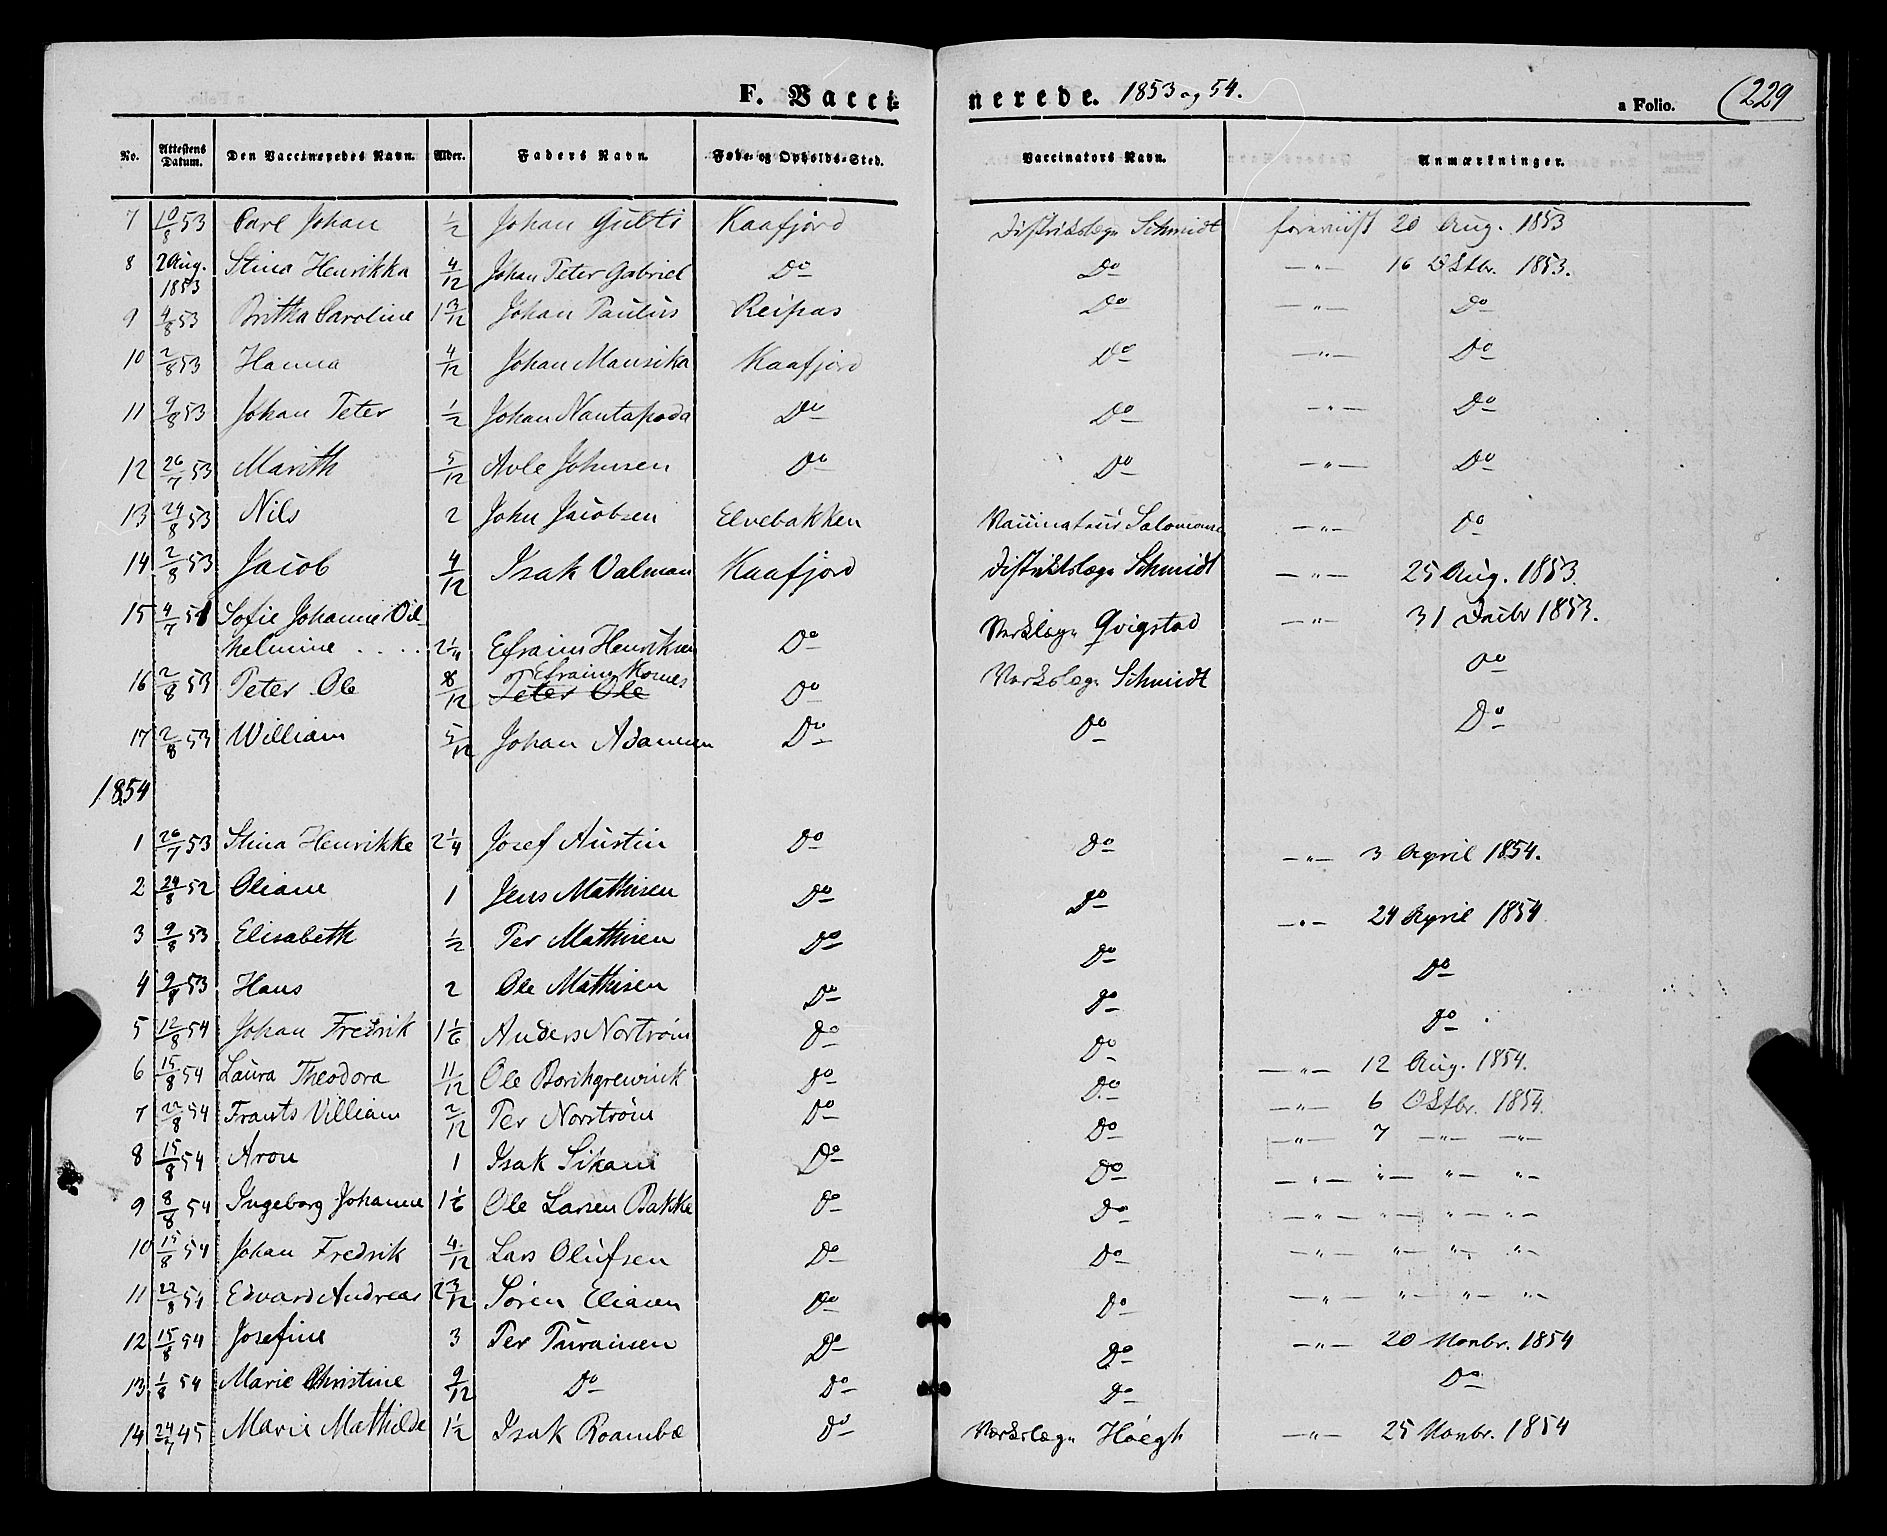 F. Vacci-
nerede. 1853 og 54.
a Folio. (229
No. Attestens Datum. Den Vaccineredes Navn. Alder. Faders Navn. Føde- og Opholds-Sted. Vaccinators Navn. Anmærkninger.
7 10/8 53 Carl Johan 1/2 Johan Kaafjord Distriktslæge Schmidt foreviist 20 Aug. 1853
8 2 Aug. 1853 Stina Henrikka 4/12 Johan Peter Gabriel Do Do —"— 16 Octbr. 1853.
9 4/8 53 Britha Caroline 1 3/12 Johan Paulus Reipas Do —"— Do
10 2/8 53 Hanna 4/12 Johan Mansika Kaafjord Do —"— Do
11 9/8 53 Johan Peter 1/2 Johan Nantapada Do Do —"— Do
12 26/7 53 Marith 5/12 Avle Johnsen Do Do —"— Do
13 24/8 53 Nils 2 John Jacobsen Elvebakken Vaccinateur Salomonsen —"— Do
14 2/8 53 Jacob 4/12 Isak Valman Kaafjord Distriktslæge Schmidt —"— 25 Aug. 1853.
15 4/7 51 Sofie Johanne Vil-
helmine . . . . 2 1/4 Efraim Henriksen Do Verkslæge Qvigstad —"— 31 Decbr 1853.
16 2/8 53 Peter Ole 8/12 Peter Ole Efraim Kornes Do Verkslæge Schmidt Do
17 2/8 53 William 5/12 Johan Adamsen Do Do Do
1854
1 26/7 53 Stina Henrikke 2 1/4 Josef Austin Do Do —"— 3 April 1854.
2 24/8 52 Oliane 1 Jens Mathisen Do Do —"— 24 April 1854.
3 9/8 53 Elisabeth 1/2 Per Mathisen Do Do Do
4 9/8 53 Hans 2 Ole Mathisen Do Do Do
5 12/8 54 Johan Fredrik 1 1/6 Anders Nortrøm Do Do —"— 12 Aug. 1854.
6 15/8 54 Laura Theodora 11/12 Ole Borchgrewink Do Do —"— 6 Octbr. 1854.
7 22/8 54 Frants Villiam 2/12 Per Norstrøm Do Do —"— 7 —"— —"—
8 15/8 54 Aron 1 Isak Sikani Do Do —"— "— "— "—
9 8/8 54 Ingeborg Johanne 1 1/6 Ole Larsen Bakke Do Do —"— "— "— "—
10 15/8 54 Johan Fredrik 4/12 Lars Olufsen Do Do —"— "— "— "—
11 22/8 54 Edvard Andreas 2 3/12 Søren Eliasen Do Do —"— "— "— "—
12 15/8 54 Josefine 3 Per Purainen Do Do —"— 20 Novbr. 1854
13 1/8 54 Marie Christine 9/12 Do Do Do Do
14 24/7 45 Marie Mathilde 1 1/2 Isak Roambæ Do Verkslæge Høegh —"— 25 Novbr. 1854